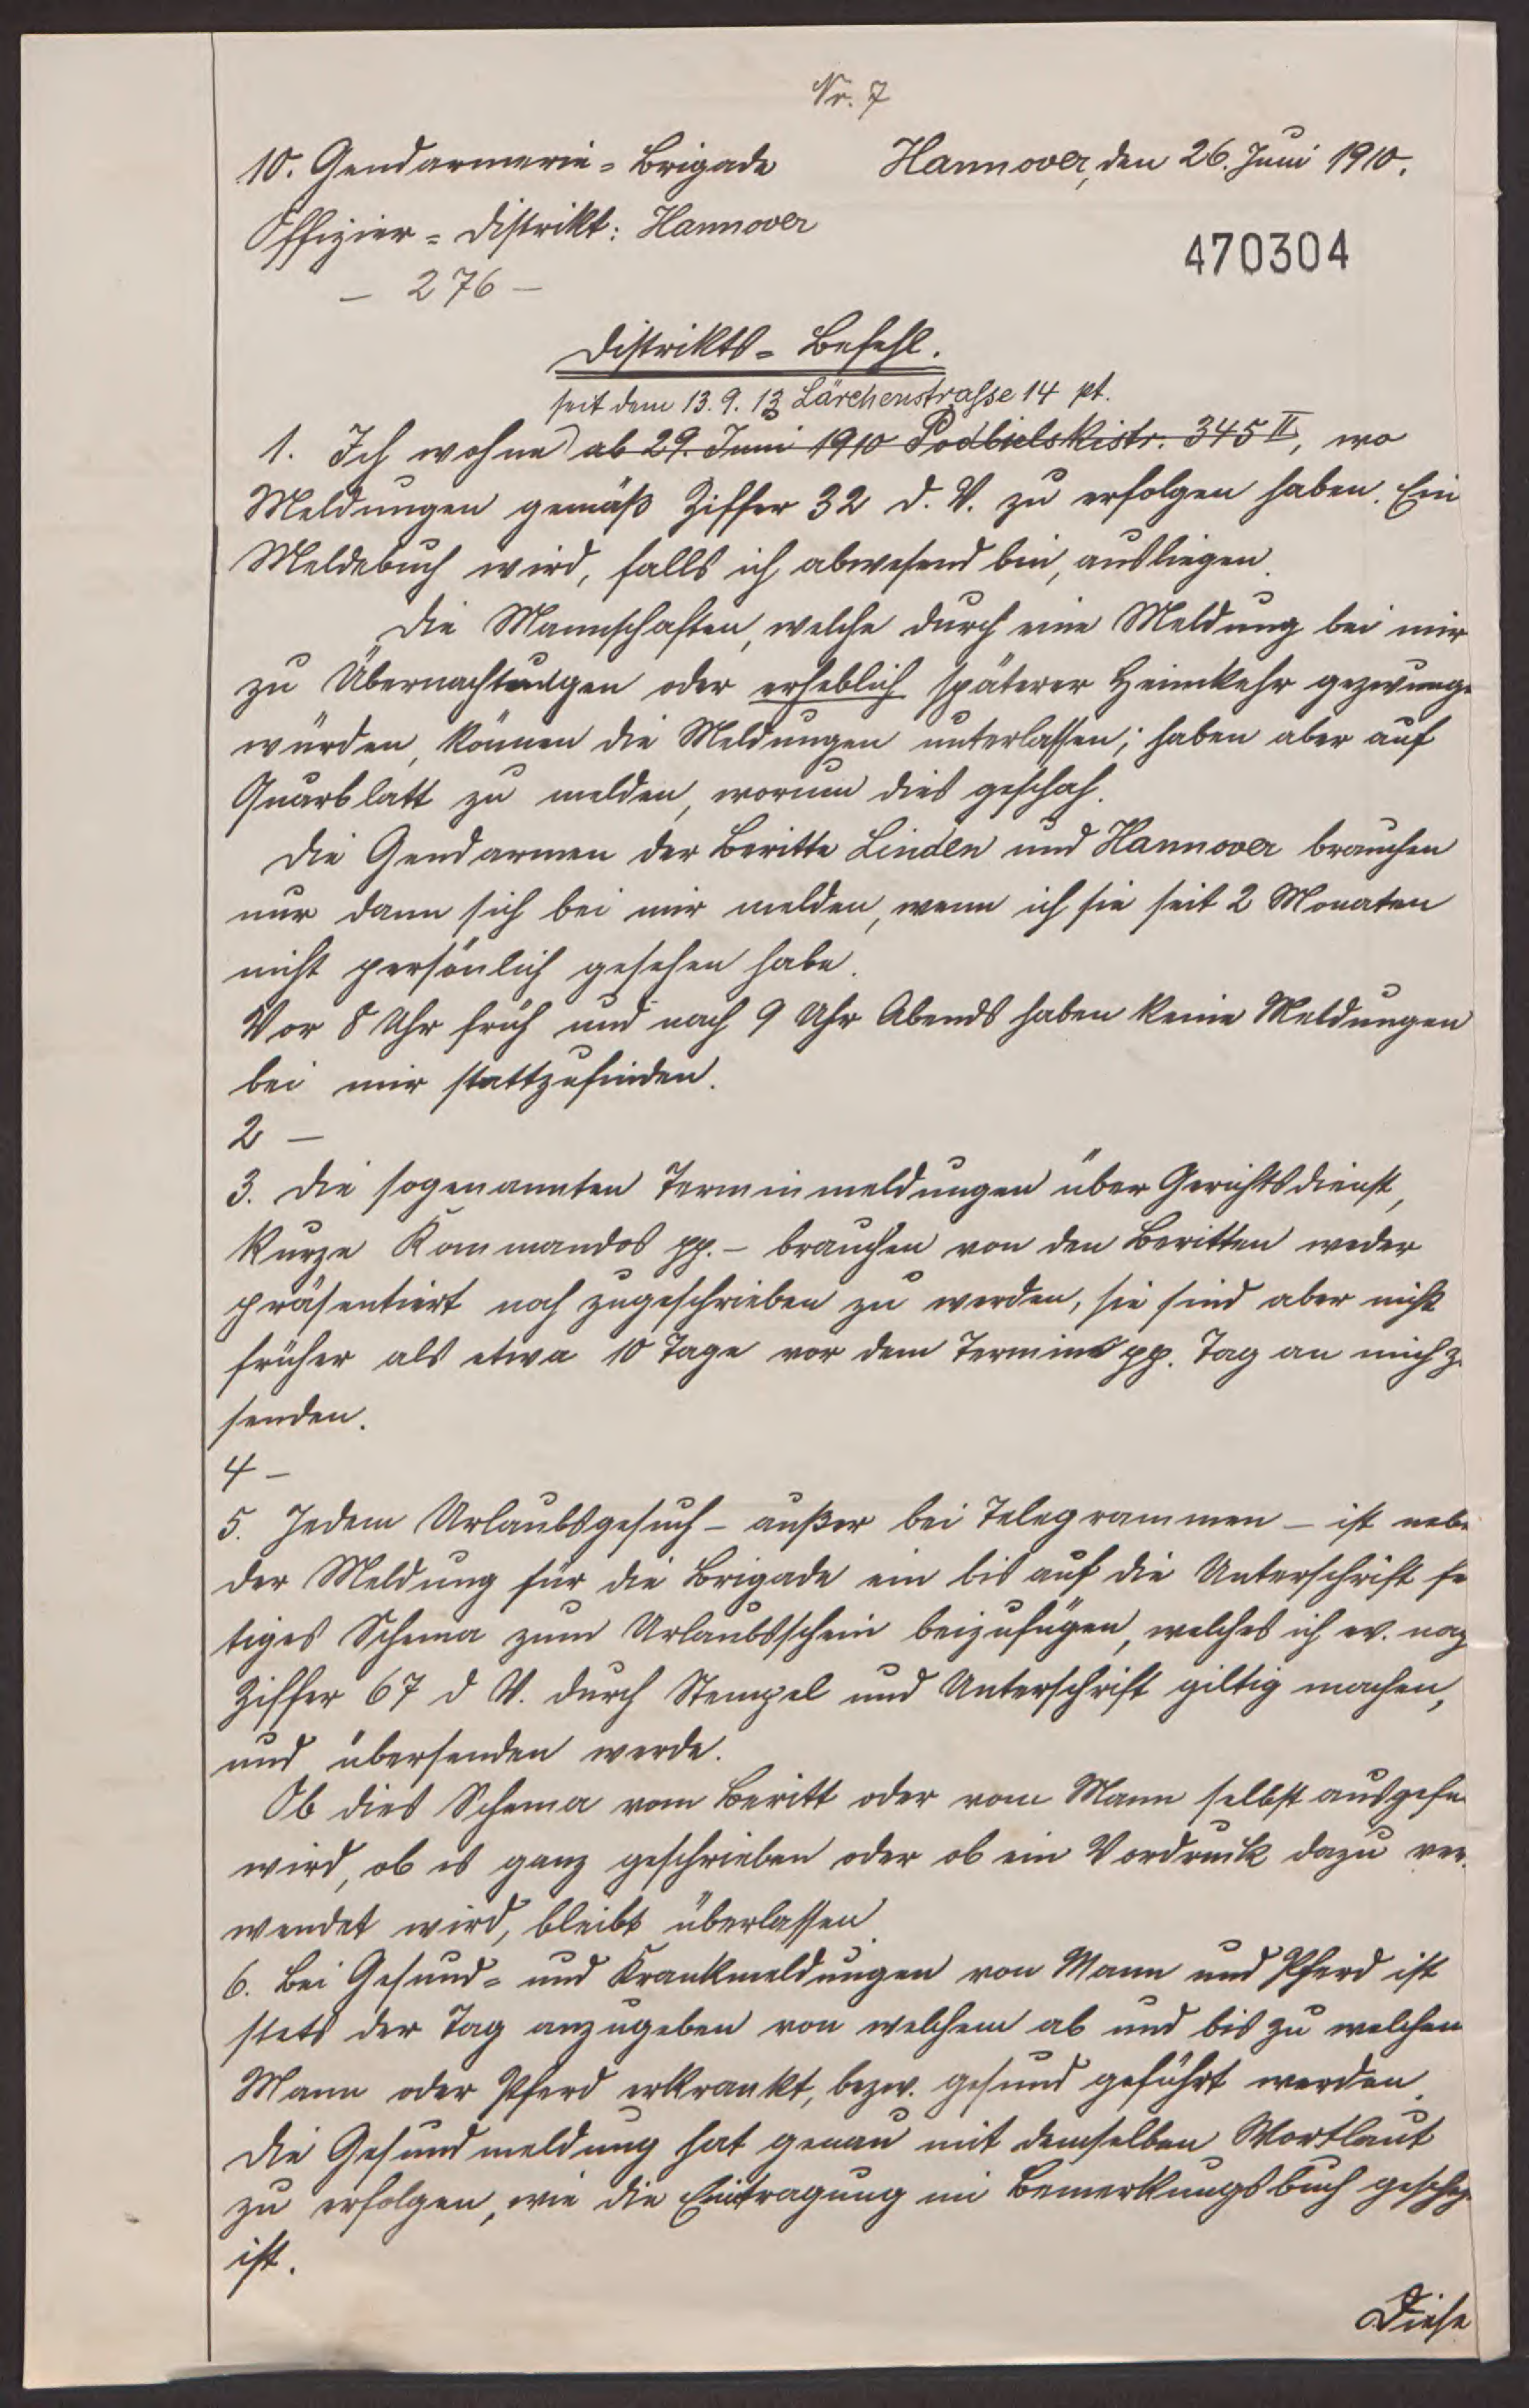 Nr. 7
10. Gendarmerie-Brigade Hannover, den 26. Juni 1910.
Offizier-Distrikt: Hannover
470304
- 276 -
Distrikts-Befehl.
seit dem 13.9.13 Lärchenstrasse 14 pt.
1. Ich wohne ab 29. Juni 1910 Podbielskistr. 345 II, wo
Meldungen gemäß Ziffer 32 d. V. zu erfolgen haben. Ein
Meldebuch wird, falls ich abwesend bin, ausliegen.
Die Mannschaften, welche durch eine Meldung bei mir
zu Übernachtungen oder erheblich späterer Heimkehr gezwunge
würden, können die Meldungen unterlassen; haben aber auf
Querblatt zu melden, warum dies geschah.
Die Gendarmen der Beritte Linden und Hannover brauchen
nur dann sich bei mir melden, wenn ich sie seit 2 Monaten
nicht persönlich gesehen habe.
Vor 8 Uhr früh und nach 9 Uhr Abends haben keine Meldungen
bei mir stattzufinden.
2 -
3. Die sogenannten Terminmeldungen über Gerichtsdienst,
kurze Kommandos pp. - brauchen von den Beritten weder
präsentiert noch zugeschrieben zu werden, sie sind aber nicht
früher als etwa 10 Tage vor dem Termins pp. Tag an mich z
senden.
4 -
5. Jedem Urlaubsgesuch - außer bei Telegrammen - ist nebe
der Meldung für die Brigade ein bis auf die Unterschrift fe
tiges Schema zum Urlaubsschein beizufügen, welches ich ev. nach
Ziffer 67 d V. durch Stempel und Unterschrift giltig machen,
und übersenden werde.
Ob dies Schema vom Beritt oder vom Mann selbst ausgefü
wird, ob es ganz geschrieben oder ob ein Vordruck dazu ver-
wendet wird, bleibt überlassen.
6. Bei Gesund- und Krankmeldungen von Mann und Pferd ist
stets der Tag anzugeben von welchem ab und bis zu welchem
Mann oder Pferd erkrankt, bezw. gesund geführt werden.
Die Gesundmeldung hat genau mit demselben Wortlaut
zu erfolgen, wie die Eintragung im Bemerkungsbuch gescheh
ist.
Diese